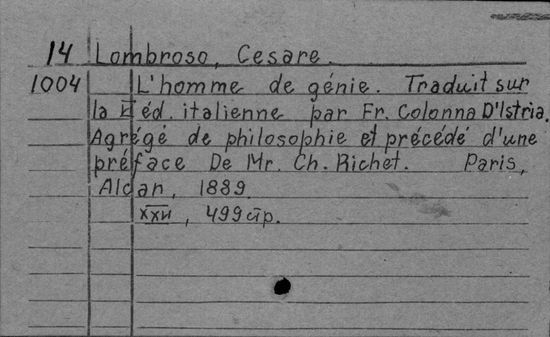 14 Lombroso, Cesare.
1004 L'homme de génie. Traduit sur
la éd. italienne par Fr. Colonna D'Istria.
Agrégé de philosophie et précédé d'une
préface De Mr. Ch. Richet. Paris,
Alcan, 1889
XXII, 499 стр.